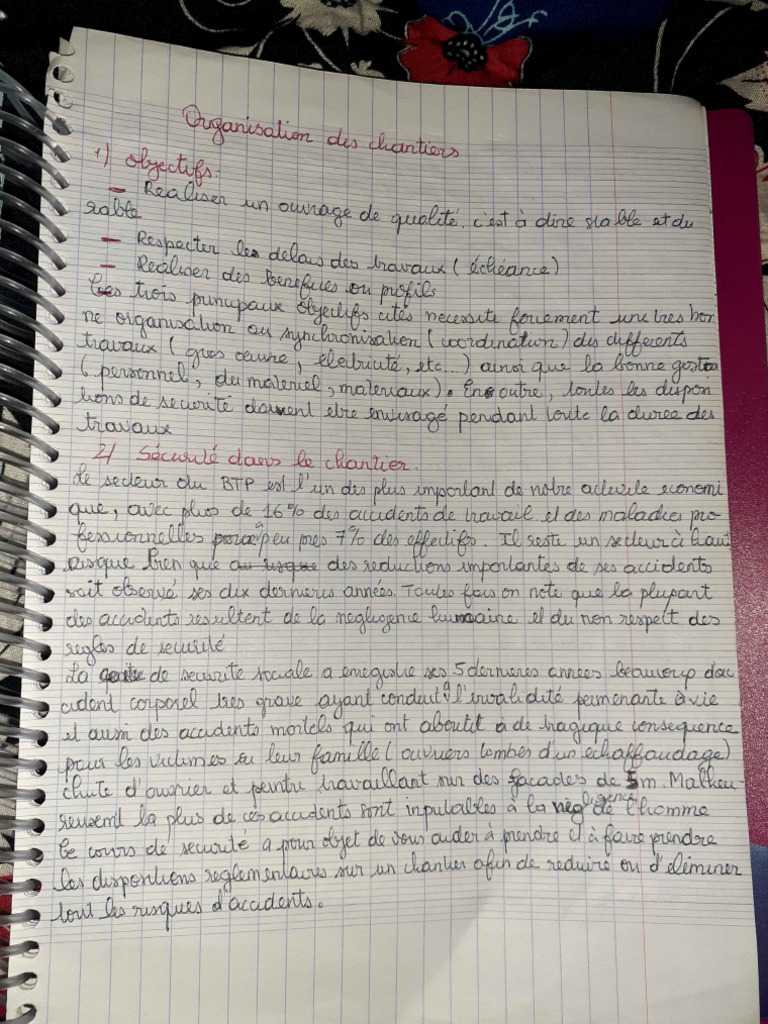 Organisation des chantiers
1) objectifs.
- Realiser un ouvrage de qualité. c'est à dire stable et du
rable
- Respecter les delais des travaux (échéance)
- Realiser des benefices ou profits
les trois principaux objectifs cités necessite forcement une tres bon
ne organisation ou synchronisation (coordination) des differents
travaux (gros œuvre, électricité, etc...) ainsi que la bonne gestion
(personnel, du materiel, materiaux). En outre, toutes les dispon
tions de securité doivent etre envisagé pendant toute la duree des
travaux
2/ Sécurité dans le chantier.
Le secteur du BTP est l'un des plus important de notre activite economi
que, avec plus de 16% des accidents de travail et des maladies pro
fessionnelles pour à peu pres 7% des effectifs. Il reste un secteur à haut
Risque bien que au risque des reductions importantes de ses accidents
soit observé ses dix dernieres années. Toutes fois on note que la plupart
des accidents resultent de la negligence humaine et du non respect des
regles de securité
La de securite sociale a enregistre ses 5 dernieres annees beaucoup d'ac
cident corporel tres grave ayant conduit à l'invalidité permenante à vie
et aussi des accidents mortels qui ont aboutit à de tragique consequence
pour les victimes ou leur famille (ouvriers tombés d'un échaffaudage)
chute d'ouvrier et peintre travaillant sur des façades de 5m. Malheu
reusemt la plus de ces accidents sont inputables à la negligence de l'homme
Le cours de securité a pour objet de vous aider à prendre et à faire prendre
les disposition reglementaires sur un chantier afin de reduire ou d'eliminer
tout les risques d'accidents.